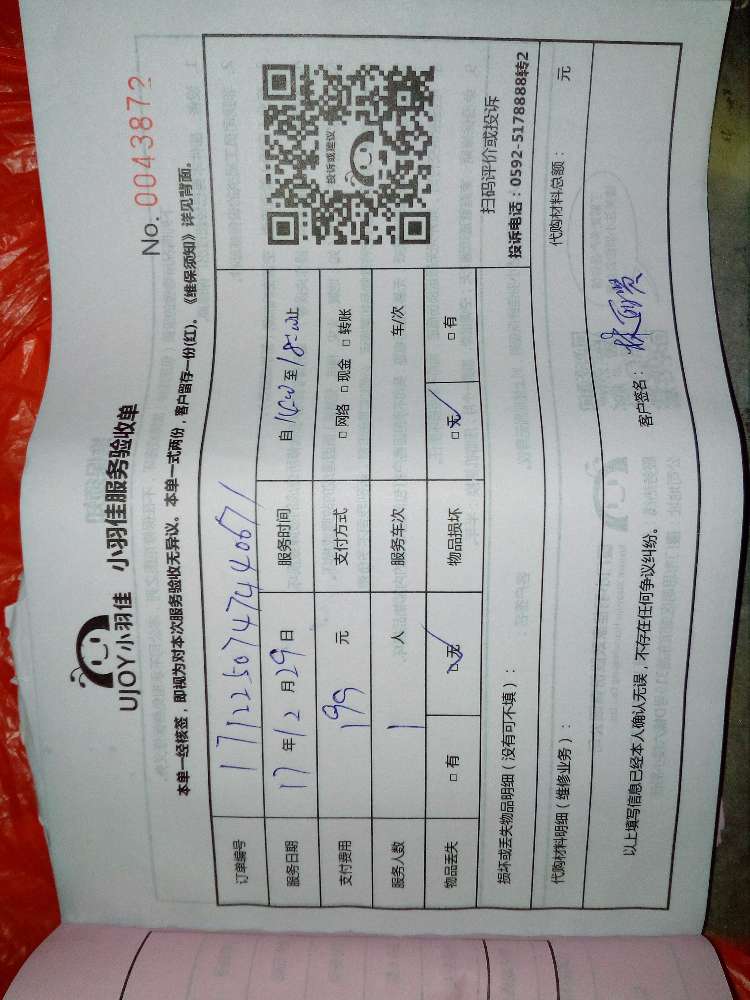 UJOY小羽佳 小羽佳服务验收单
No. 0043872
本单一经核签，即视为对本次服务验收无异议。本单一式两份，客户留存一份(红)。《维保须知》详见背面。
订单编号 1712250747440671
服务日期 17年12月29日 服务时间 自16:00至18:00止
支付费用 199元 支付方式 □网络 □现金 □转账
服务人数 1人 服务车次 车/次
物品丢失 □有 □无✓ 物品损坏 □无✓ □有
投诉或建议
扫码评价或投诉
投诉电话：0592-5178888转2
损坏或丢失物品明细（没有可不填）：
代购材料明细（维修业务）： 代购材料总额： 元
以上填写信息已经本人确认无误，不存在任何争议纠纷。 客户签名：